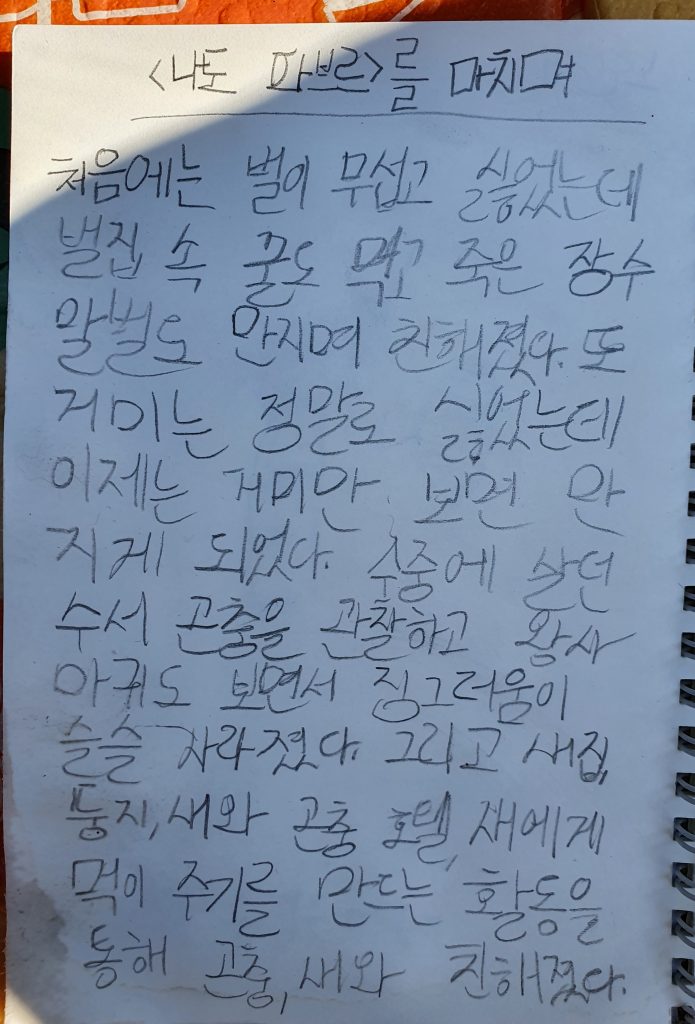 <나도 파브르>를 마치며
처음에는 벌이 무섭고 싫었는데
벌집 속 꿀도 먹고 죽은 장수
말벌도 만지며 친해졌다. 또
거미는 정말로 싫었는데
이제는 거미만 보면 만
지게 되었다. 수중에 살던
수서 곤충을 관찰하고 왕사
마귀도 보면서 징그러움이
슬슬 사라졌다. 그리고 새집,
둥지, 새와 곤충 호텔, 새에게
먹이 주기를 만드는 활동을
통해 곤충, 새와 친해졌다.